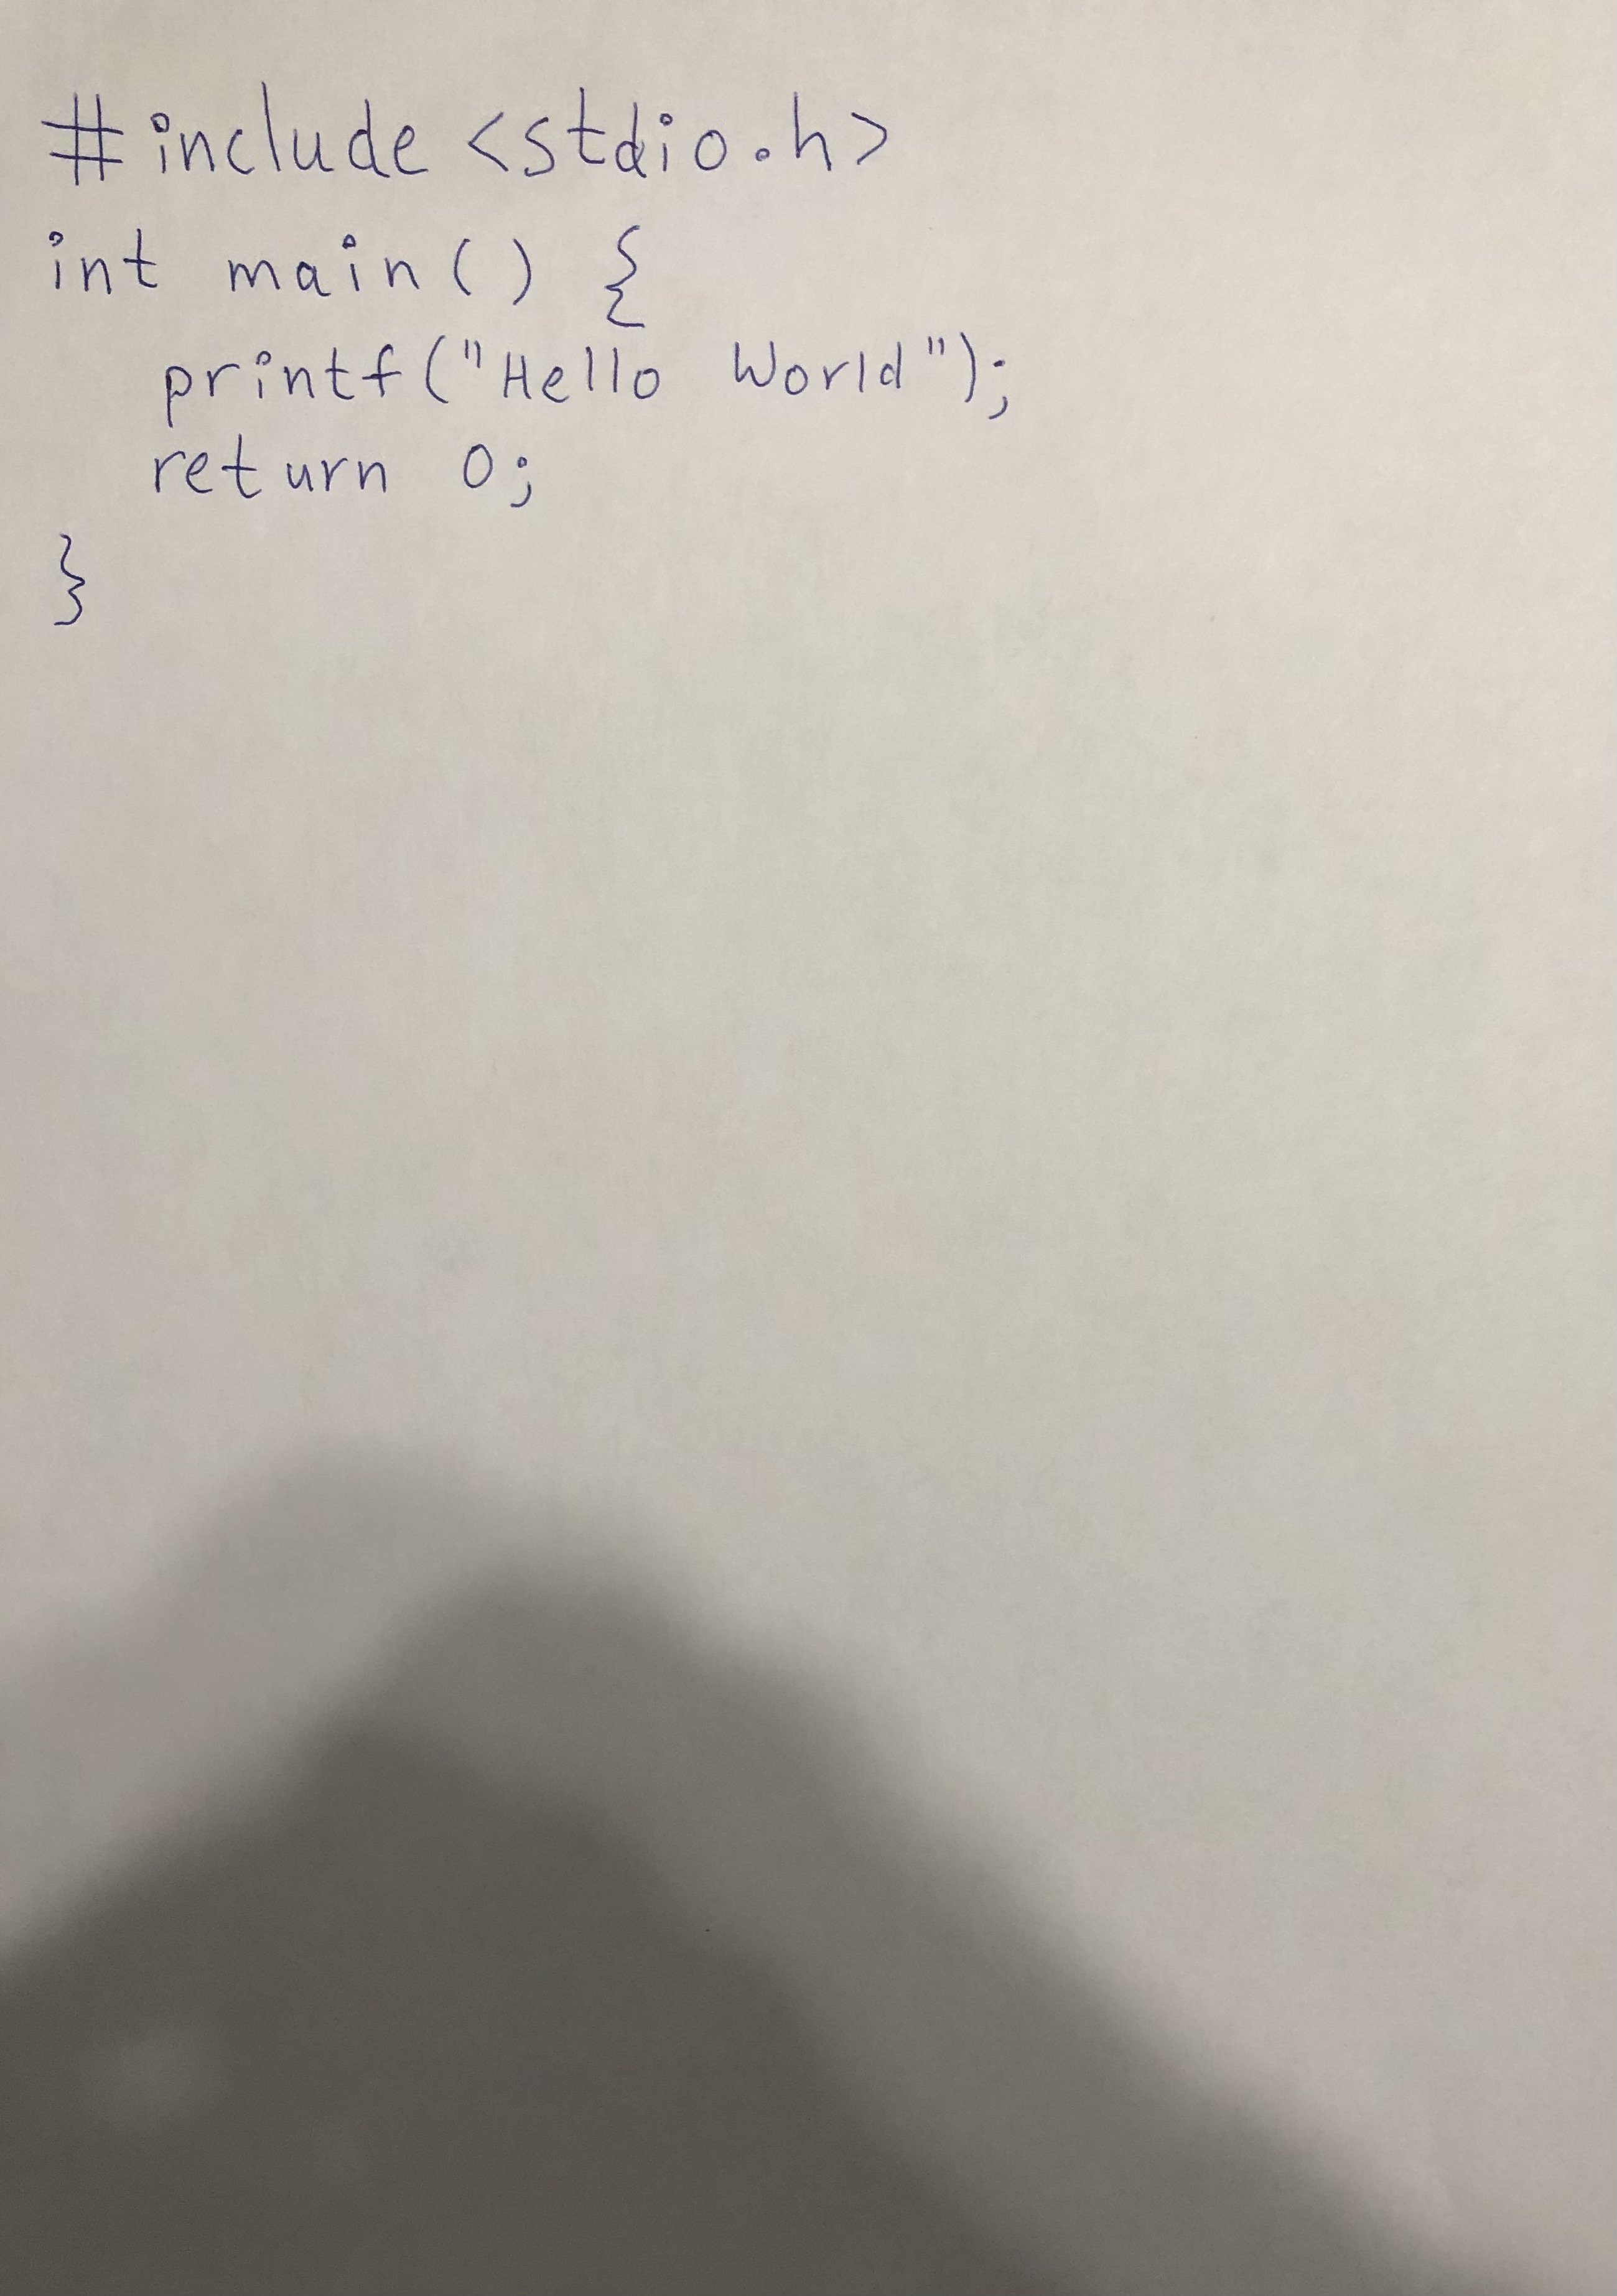 #include <stdio.h>
int main() {
printf("Hello World");
return 0;
}